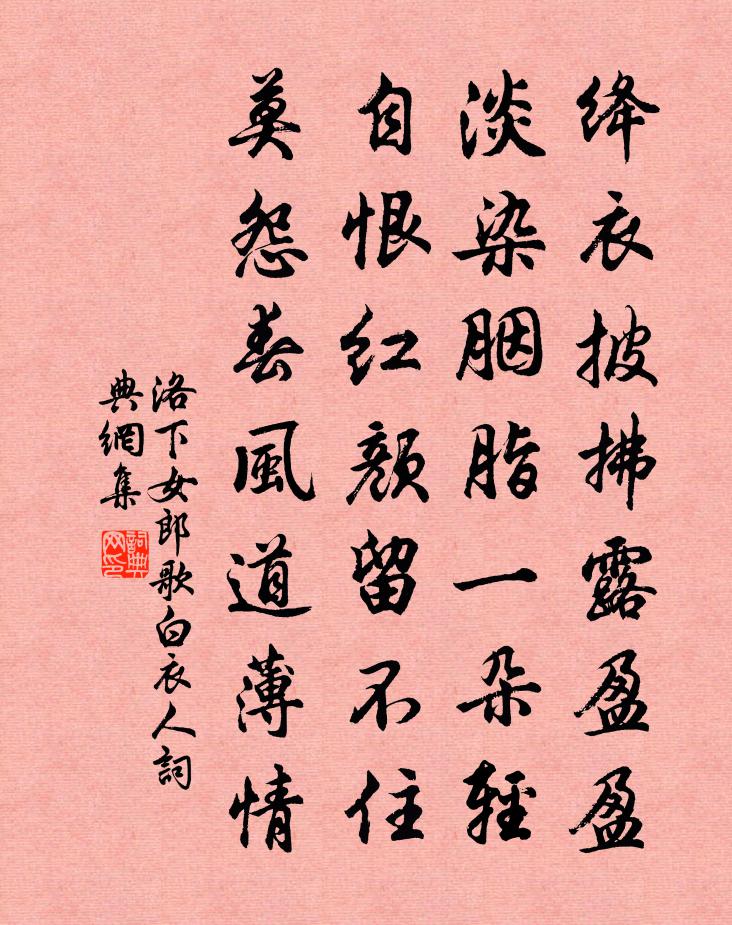 绛衣披拂露盈盈
淡染胭脂一朵輕
自恨红颜留不住
莫怨春風道薄情
洛下女郎歌白衣人詞
典網集
詞典网印